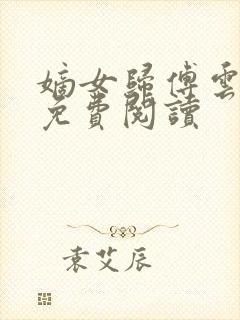 嫡女歸傅雲
免費閱讀
袁艾辰